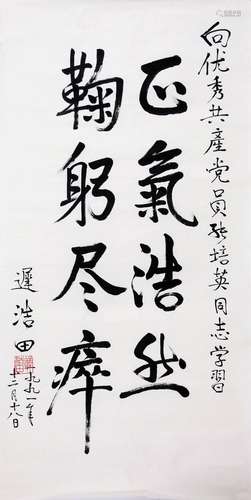 向优秀共產党員张培英同志学習
正氣浩然
鞠躬尽瘁
遲浩田
一九九一年
十二月十八日